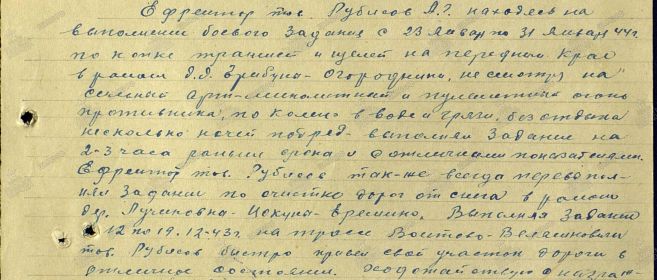 Ефрейтор тов. Рубисов А.? находясь на
выполнении боевого задания с 23 Января по 31 Января 44г.
по копке траншей и щелей на передним Крае
в районе д.д. Грибуны - Огородники, несмотря на
сильный арт-минометный и пулеметный огонь
противника, по колено в воде и грязи, без отдыха
несколько ночей подряд - выполнял задание на
2-3 часа раньше срока и с отличными показателями.
Ефрейтор тов. Рубисов так-же всегда перевопол-
нял задания по очистке дорог от снега в районе
дер. - Цокуны - Ерешино. Выполняя задание
12 по 19.12-43г. на трассе Войтово -
тов. Рубисов быстро привел свой участок дороги в
отличное состояние.